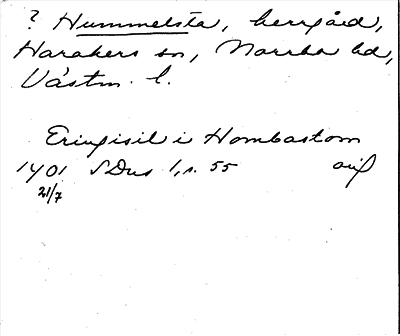 ? Hummelsta, herrgård,
Harakers sn, Norrbo hd,
Västm. l.
Eringisil i Hombastom
1401 SDns 1, s. 55 orig
21/7